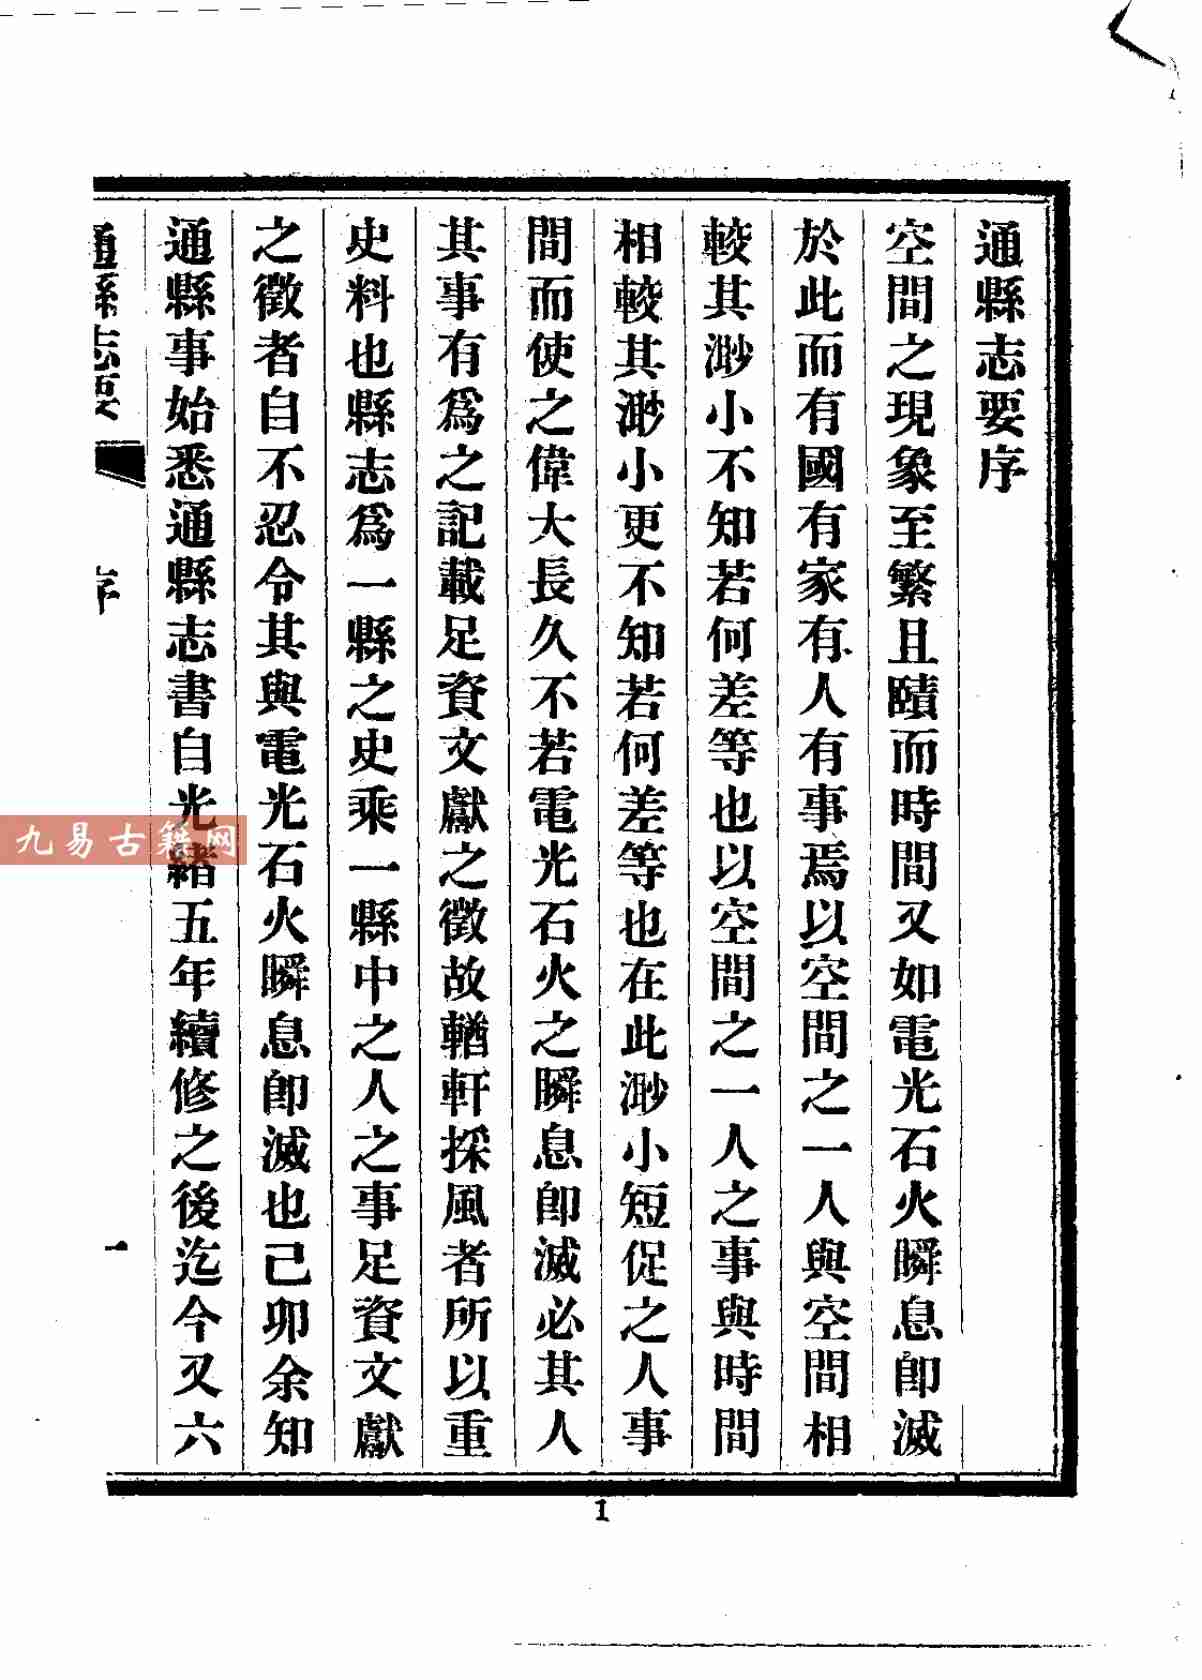 通縣志要序
空間之現象至繁且賾而時間又如電光石火瞬息卽滅
於此而有國有家有人有事焉以空間之一人與空間相
較其渺小不知若何差等也以空間之一人之事與時間
相較其渺小更不知若何差等也在此渺小短促之人事
間而使之偉大長久不若電光石火之瞬息卽滅必其人
其事有爲之記載足資文獻之徵故輶軒採風者所以重
史料也縣志爲一縣之史乘一縣中之人之事足資文獻
之徵者自不忍令其與電光石火瞬息卽滅也己卯余知
通縣事始悉通縣志書自光緒五年續修之後迄今又六
通縣志要 序 一
1
九易古籍网